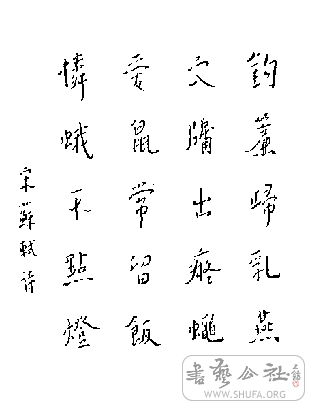 鈎簾歸乳燕
穴牖出癡蠅
愛鼠常留飯
憐蛾不點燈
宋蘇軾詩
書藝公社
WWW.SHUFA.ORG